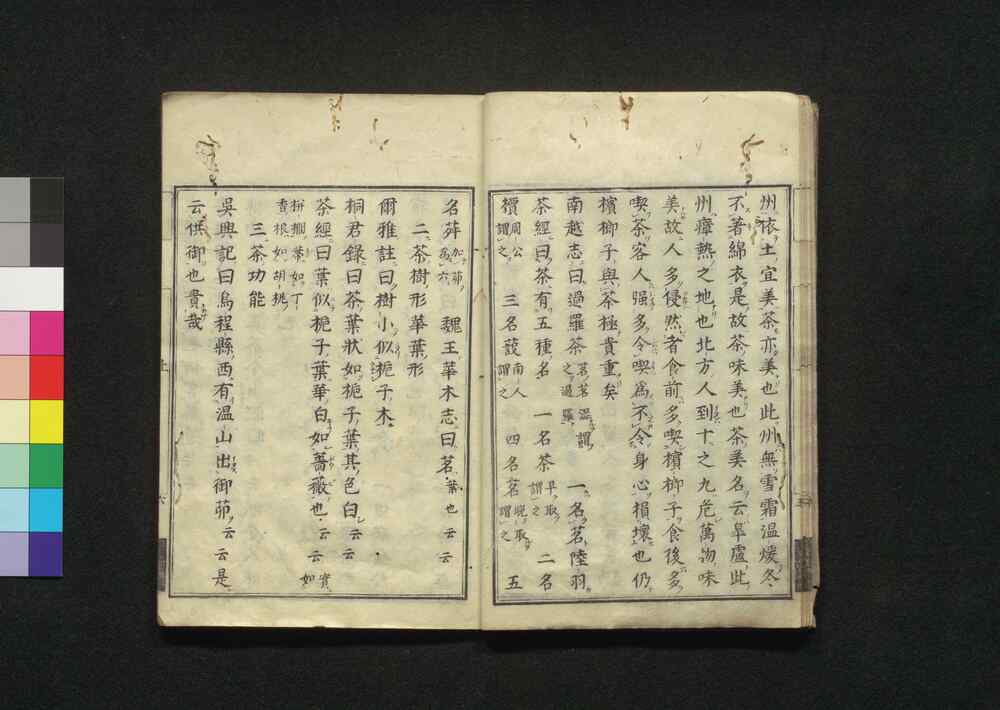 州依土宜美茶亦美也此州無雪霜温煖冬
不著綿衣是故茶味美也茶美名云皐盧此
州瘴熱之地也北方人到十之九危萬物味
美故人多侵然者食前多喫檳榔子食後多
喫茶客人强多令喫爲不令身心損壞也仍
檳榔子與茶極貴重矣
南越志曰過羅茶茗茗澁謂之過羅一名茗陸羽
茶經曰茶有五種名一名茶早取謂之二名
檟周公謂之三名蔎南人謂之四名茗晚取謂之五
名荈加茆為六魏王華木志曰茗葉也云云
二茶樹形華葉形
爾雅註曰樹小似梔子木
桐君録曰茶葉狀如梔子葉其色白云云
茶經曰葉似梔子葉華白如薔薇也云云實如
栟櫚葉如丁香根如胡桃
三茶功能
吳興記曰烏程縣西有温山出御茆云云是
云供御也貴哉